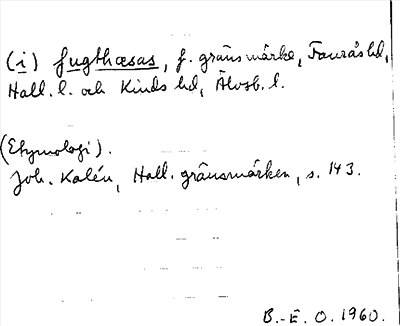 (i) fugthæsas, f. gränsmärke, Faurås hd,
Hall. l. och Kinds hd, Älvsb. l.
(Etymologi).
Joh. Kalén, Hall. gränsmärken, s. 143.
B.-E. O. 1960.